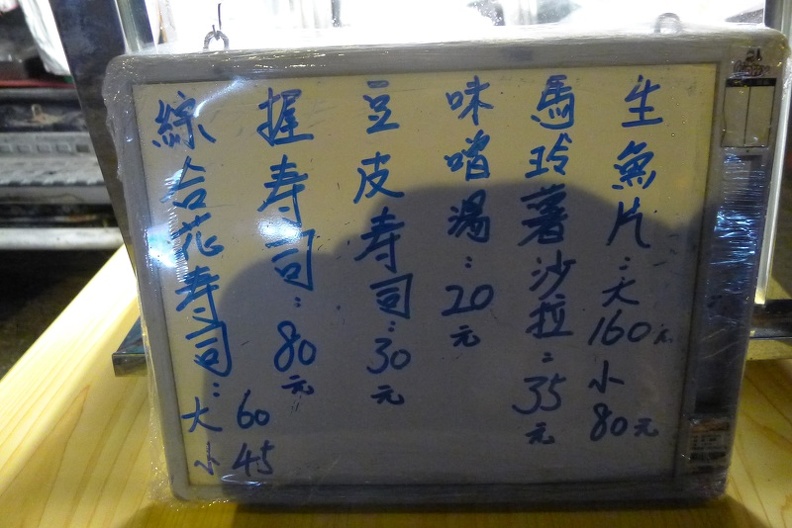 生魚片：大160元
小80元
馬玲薯沙拉：35元
味噌湯：20元
豆皮寿司：30元
握寿司：80元
綜合花寿司：大60
小45